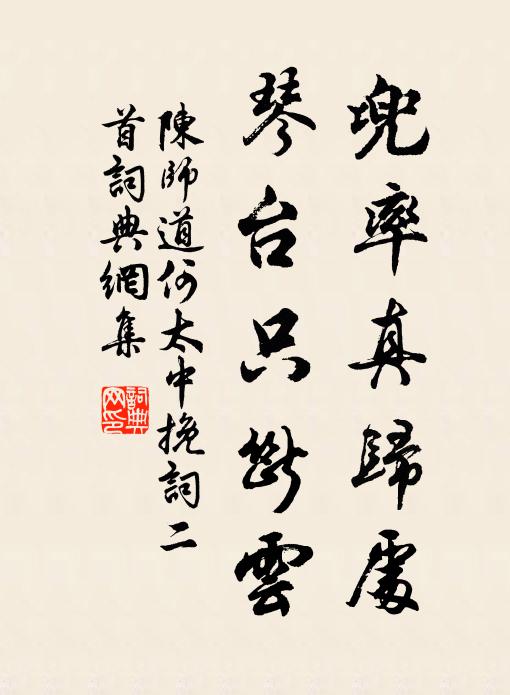 兜率真歸處
琴台只斷雲
陳師道何太中挽詞二
首詞典網集
詞典
网印